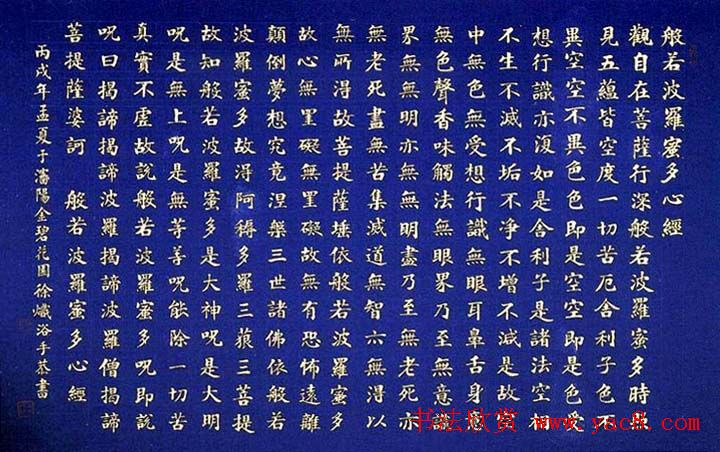 般若波羅蜜多心經
觀自在菩薩行深般若波羅蜜多時照
見五蘊皆空度一切苦厄舍利子色不
異空空不異色色即是空空即是色受
想行識亦復如是舍利子是諸法空相
不生不滅不垢不淨不增不減是故空
中無色無受想行識無眼耳鼻舌身意
無色聲香味觸法無眼界乃至無意識
界無無明亦無無明盡乃至無老死亦
無老死盡無苦集滅道無智亦無得以
無所得故菩提薩埵依般若波羅蜜多
故心無罣礙無罣礙故無有恐怖遠離
顛倒夢想究竟涅槃三世諸佛依般若
波羅蜜多故得阿耨多羅三藐三菩提
故知般若波羅蜜多是大神呪是大明
呪是無上呪是無等等呪能除一切苦
真實不虛故說般若波羅蜜多呪即說
呪曰揭諦揭諦波羅揭諦波羅僧揭諦
菩提薩婆訶 般若波羅蜜多心經
丙戌年孟夏于瀋陽金碧花園徐熾浴手恭書
书法欣赏 www.yac8.com